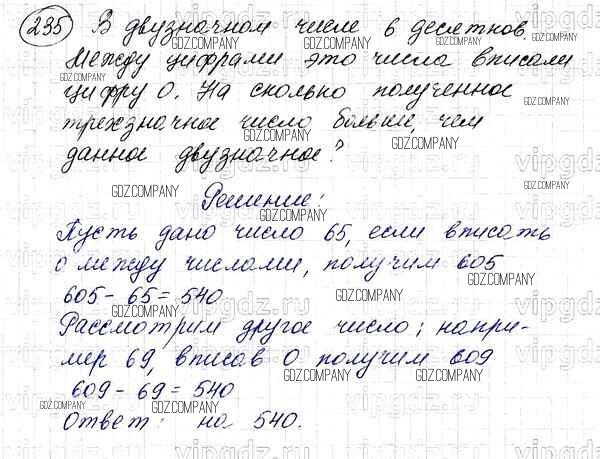 235 В двузначном числе 6 десятков.
Между цифрами это числа вписали
цифру 0. На сколько полученное
трехзначное число больше, чем
данное двузначное?
Решение:
Пусть дано число 65, если вписать
0 между числами, получим 605
605 - 65 = 540
Рассмотрим другое число; напри-
мер 69, вписав 0 получим 609
609 - 69 = 540
Ответ: на 540.